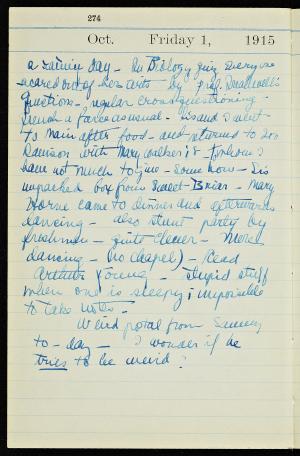 274
Oct. Friday 1, 1915
a rainy day - In Biology quiz everyone
scared out of her wits - by Prof.
questions - regular cross questioning.
French a farce as usual. Sis and I went
to main after food - and returned to 200
Davison with Mary Walker's
have not much to give - Some how - Sis
unpacked box from Sweet-Briar - Mary
Horne came to dinner and afterwards
dancing - also stunt party by
freshmen - quite clever - More
dancing - (no chapel) - Read
Arthur Young - stupid stuff
when one is sleepy & impossible
to take notes -
Weird postal from Sammy
to-day - I wonder if he
tries to be weird?